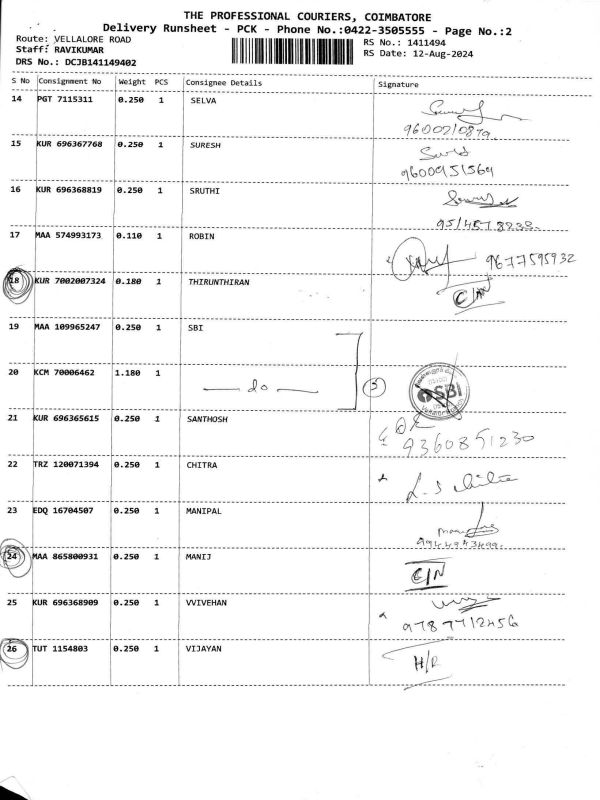 THE PROFESSIONAL COURIERS, COIMBATORE
Delivery Runsheet - PCK - Phone No.:0422-3505555 - Page No.:2
Route: VELLALORE ROAD
RS No.: 1411494
Staff: RAVIKUMAR
RS Date: 12-Aug-2024
DRS No.: DCJB141149402
S No Consignment No Weight PCS Consignee Details Signature
14 PGT 7115311 0.250 1 SELVA
9600210879
15 KUR 696367768 0.250 1 SURESH
9600951569
16 KUR 696368819 0.250 1 SRUTHI
17 MAA 574993173 0.110 1 ROBIN
9677595932
18 KUR 7002007324 0.180 1 THIRUNTHIRAN
C/N
19 MAA 109965247 0.250 1 SBI
20 KCM 70006462 1.180 1
do
SBI
21 KUR 696365615 0.250 1 SANTHOSH
9360851230
22 TRZ 120071394 0.250 1 CHITRA
23 EDQ 16704507 0.250 1 MANIPAL
9944943499
24 MAA 865800931 0.250 1 MANIJ
C/N
25 KUR 696368909 0.250 1 VVIVEHAN
9787712456
26 TUT 1154803 0.250 1 VIJAYAN
H/R